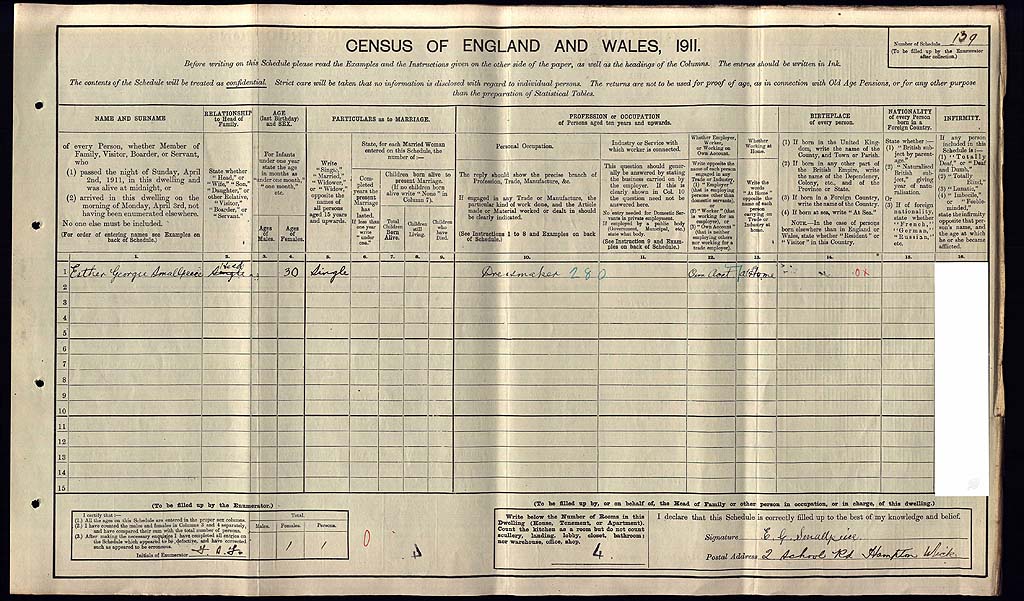 Number of Schedule 139
(To be filled up by the Enumerator
after collection.)
CENSUS OF ENGLAND AND WALES, 1911.
Before writing on this Schedule please read the Examples and the Instructions given on the other side of the paper, as well as the headings of the Columns. The entries should be written in Ink.
The contents of the Schedule will be treated as confidential. Strict care will be taken that no information is disclosed with regard to individual persons. The returns are not to be used for proof of age, as in connection with Old Age Pensions, or for any other purpose
than the preparation of Statistical Tables.
NAME AND SURNAME
of every Person, whether Member of
Family, Visitor, Boarder, or Servant,
who
(1) passed the night of Sunday, April
2nd, 1911, in this dwelling and
was alive at midnight, or
(2) arrived in this dwelling on the
morning of Monday, April 3rd, not
having been enumerated elsewhere.
No one else must be included.
(For order of entering names see Examples on
back of Schedule.)
RELATIONSHIP
to Head of
Family.
State whether
"Head," or
"Wife," "Son,"
"Daughter," or
other Relative,
"Visitor,"
"Boarder," or
"Servant."
AGE
(last Birthday)
and SEX.
For Infants
under one year
state the age
in months as
"under one month,"
"one month,"
etc.
Ages
of
Males.
Ages
of
Females.
PARTICULARS as to MARRIAGE.
Write
"Single,"
"Married,"
"Widower,"
or "Widow,"
opposite the
names of
all persons
aged 15 years
and upwards.
State, for each Married Woman
entered on this Schedule, the
number of:—
Completed
years the
present
Marriage
has
lasted.
If less than
one year
write
"under
one."
Children born alive to
present Marriage.
(If no children born
alive write "None" in
Column 7).
Total
Children
Born
Alive.
Children
still
Living.
Children
who
have
Died.
PROFESSION or OCCUPATION
of Persons aged ten years and upwards.
Personal Occupation.
The reply should show the precise branch of
Profession, Trade, Manufacture, &c.
If engaged in any Trade or Manufacture, the
particular kind of work done, and the Article
made or Material worked or dealt in should
be clearly indicated.
(See Instructions 1 to 8 and Examples on back
of Schedule.)
Industry or Service with
which worker is connected.
This question should generally
be answered by stating
the business carried on by
the employer. If this is
clearly shown in Col. 10
the question need not be
answered here.
No entry needed for Domestic Servants
in private employment.
If employed by a public body
(Government, Municipal, etc.)
state what body.
(See Instruction 9 and Examples
on back of Schedule.)
Whether Employer,
Worker,
or Working on
Own Account.
Write opposite the
name of each person
engaged in any
Trade or Industry,
(1) "Employer"
(that is employing
persons other
than domestic
servants),
or
(2) "Worker" (that
is working for an
employer), or
(3) "Own Account"
(that is neither
employing others
nor working for a
trade employer).
Whether
Working at
Home.
Write the
words
"At Home"
opposite the
name of each
person
carrying on
Trade or
Industry at
home.
BIRTHPLACE
of every person.
(1) If born in the United Kingdom,
write the name of the
County, and Town or Parish.
(2) If born in any other part of
the British Empire, write
the name of the Dependency,
Colony, etc., and of the
Province or State.
(3) If born in a Foreign Country,
write the name of the Country.
(4) If born at sea, write "At Sea."
NOTE.—In the case of persons
born elsewhere than in England or
Wales, state whether "Resident" or
"Visitor" in this Country.
NATIONALITY
of every Person
born in a
Foreign Country.
State whether:—
(1) "British subject
by parentage,"
(2) "Naturalised
British subject,"
giving
year of naturalisation.
Or
(3) If of foreign
nationality,
state whether
"French,"
"German,"
"Russian,"
etc.
INFIRMITY.
If any person
included in this
Schedule is:—
(1) "Totally
Deaf," or "Deaf
and Dumb,"
(2) "Totally
Blind,"
(3) "Lunatic,"
(4) "Imbecile,"
or "Feeble-minded,"
state the infirmity
opposite that person's
name, and
the age at which
he or she became
afflicted.
1. 2. 3. 4. 5. 6. 7. 8. 9. 10. 11. 12. 13. 14. 15. 16.
1 Esther Georgie Smallpeice Head Single 30 Single Dressmaker 280 Own Acct At Home 0x
2
3
4
5
6
7
8
9
10
11
12
13
14
15
(To be filled up by the Enumerator.)
I certify that:—
(1.) All the ages on this Schedule are entered in the proper sex columns.
(2.) I have counted the males and females in Columns 3 and 4 separately,
and have compared their sum with the total number of persons.
(3.) After making the necessary enquiries I have completed all entries on
the Schedule which appeared to be defective, and have corrected
such as appeared to be erroneous.
Initials of Enumerator
Total.
Males. Females. Persons.
1 1
0
(To be filled up by, or on behalf of, the Head of Family or other person in occupation, or in charge, of this dwelling.)
Write below the Number of Rooms in this
Dwelling (House, Tenement, or Apartment).
Count the kitchen as a room but do not count
scullery, landing, lobby, closet, bathroom;
nor warehouse, office, shop.
4
I declare that this Schedule is correctly filled up to the best of my knowledge and belief.
Signature E. G. Smallpeice
Postal Address 2 School Rd Hampton Wick